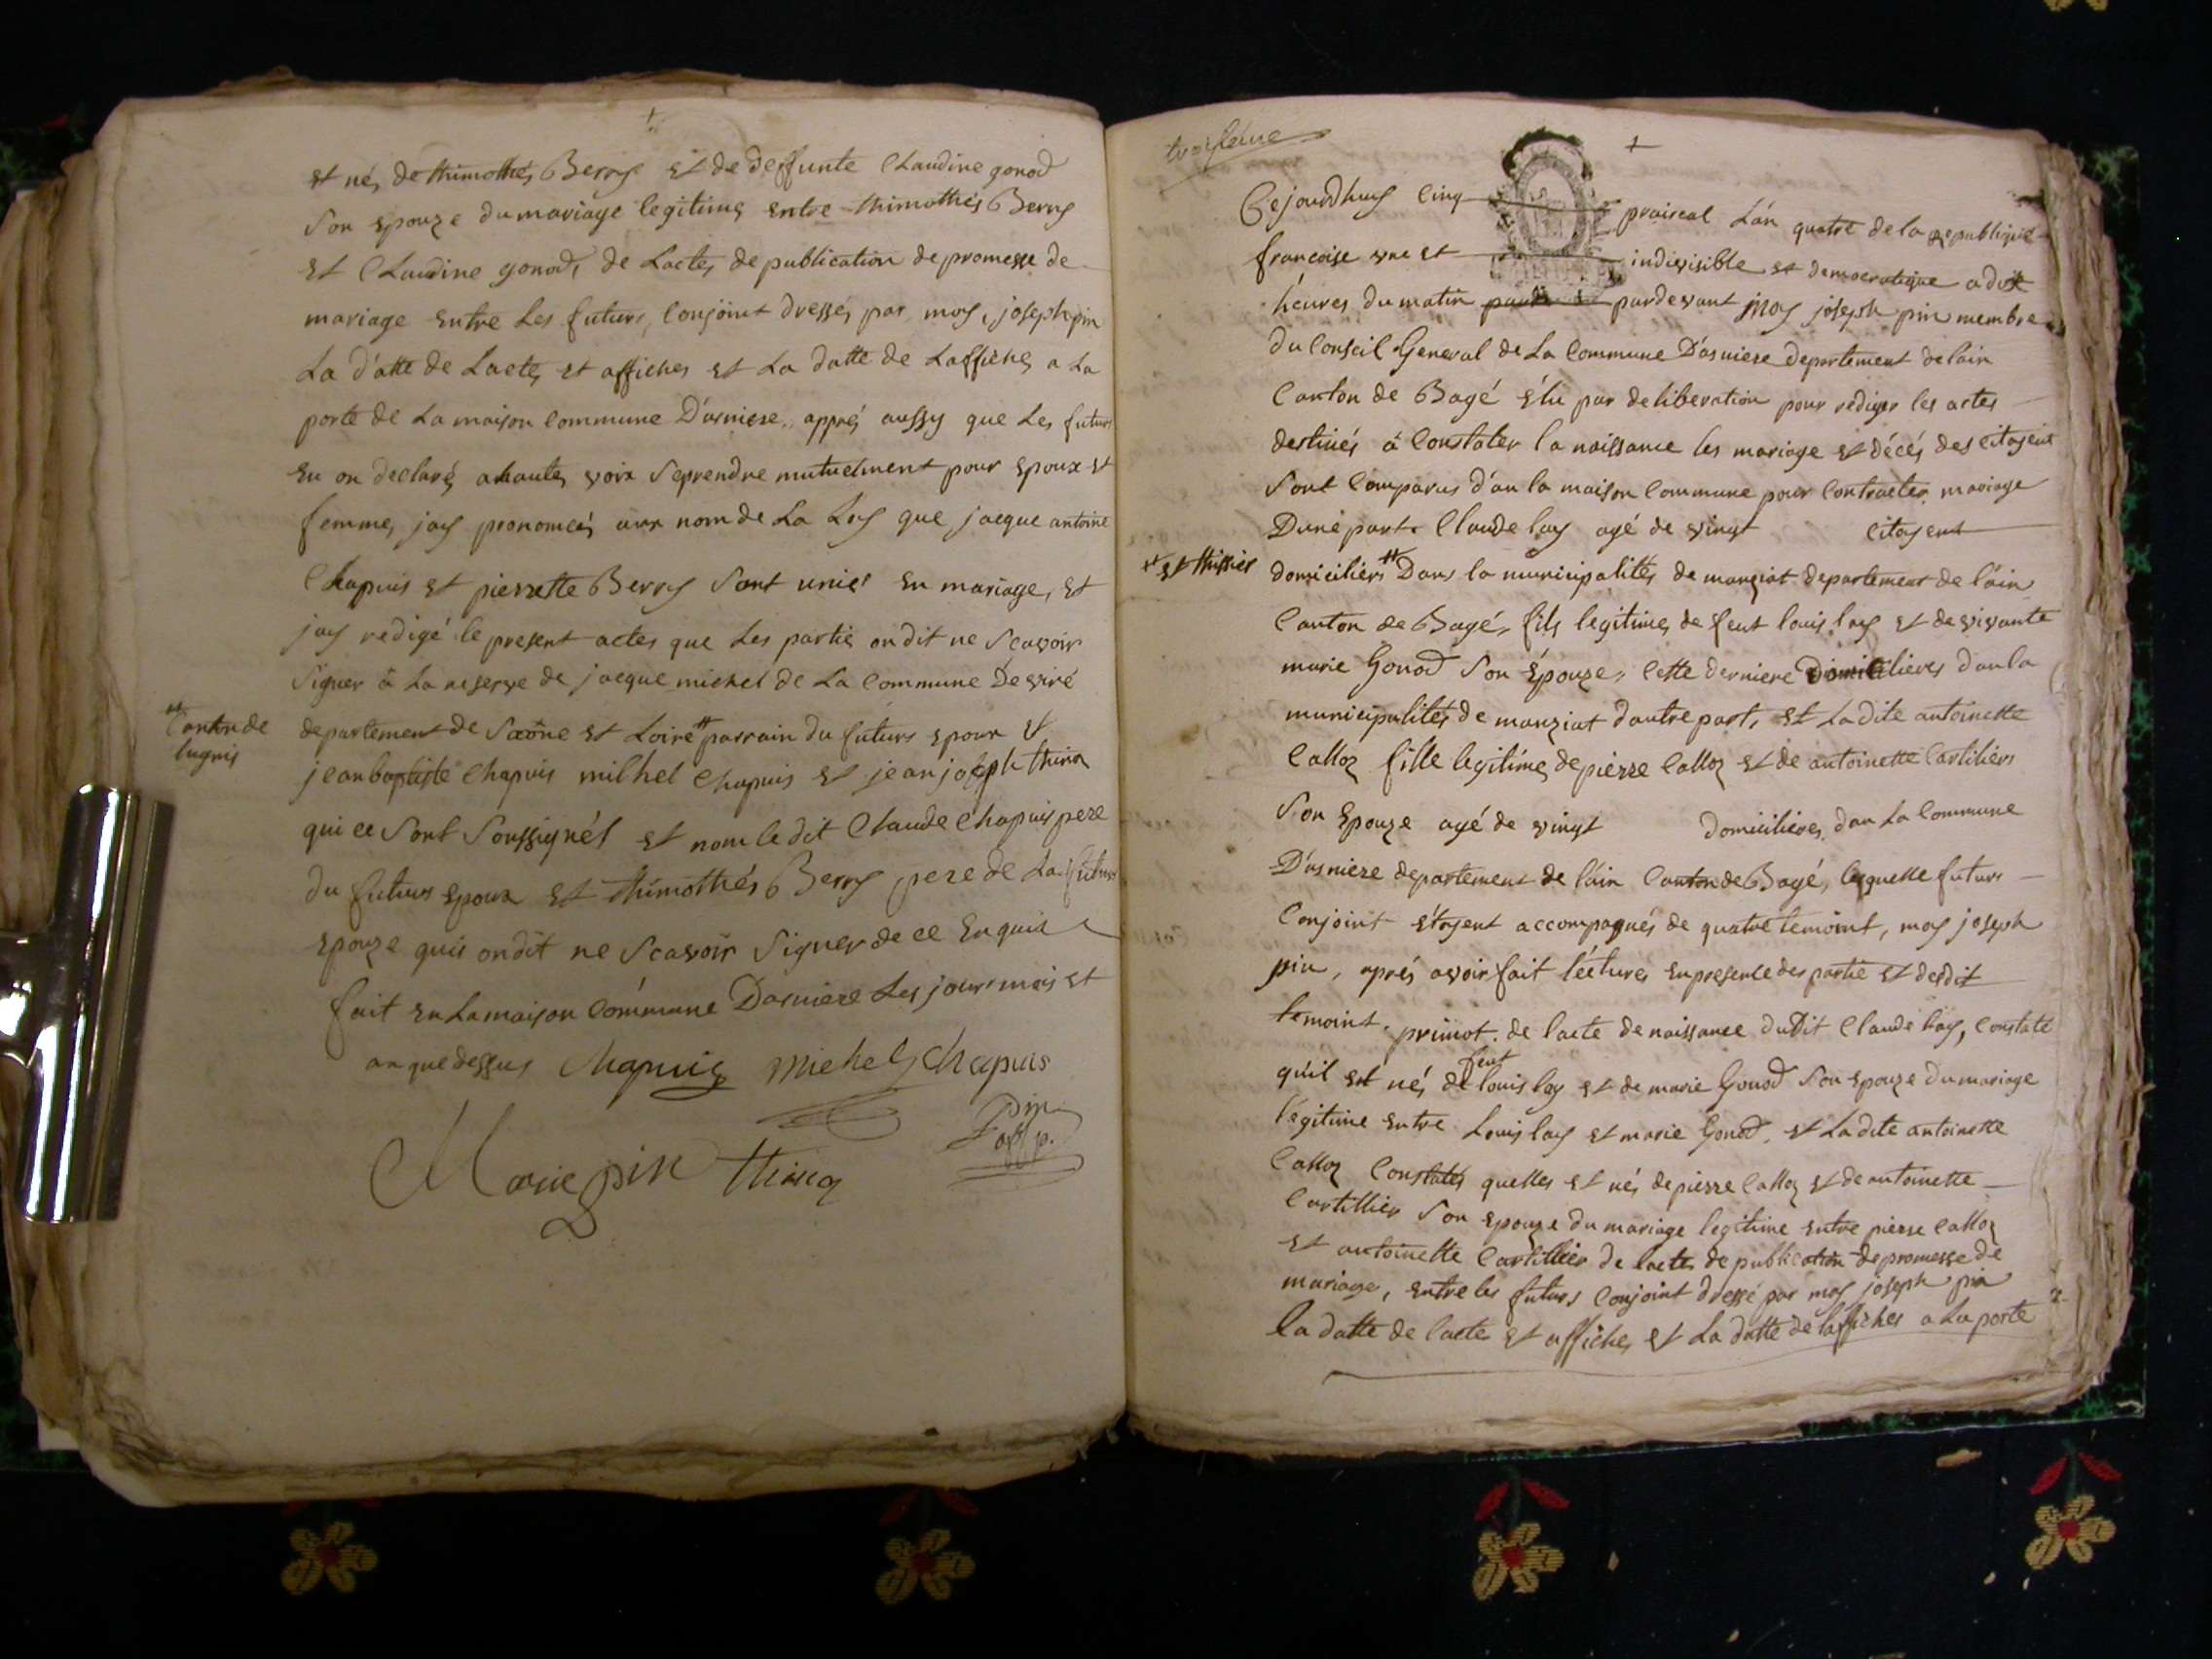 et né, de thimothés Berry et de deffunte Claudine gonod
Son epouze du mariage legitimes entre thimothés Berry
et Claudine gonod, de Lactes de publication de promesse de
mariage entre Les futurs, Conjoint dressés par moy, joseph pin
La d'atte de Lactes et affiches et La datte de Laffiches a La
porte de La maison Commune D'asniere, apprés aussy que Les futurs
eu on declarés ahautes voix Seprendre mutuelment pour epoux et
femme, jay prononcés aux nom de La Loy que jacque antoine
Chapuis et pierrette Berry Sont unies en mariage, et
jay redigé le present actes que Les partie on dit ne Scavoir
Signer â La reserve de jacque michel de La Commune De viré
departement de Saône et Loire # parrain du futurs epoux et
# Canton de
lugnis
jean baptiste Chapuis milhel Chapuis et jean joseph thina
qui ce Sont Soussignés et nom le dit Claude Chapuis pere
du futurs epoux et thimothés Berry pere de La future
epouze quis on dit ne Scavoir Signer de ce enquis
fait en La maison Commune Dasniere Les jour mois et
an que dessus Chapuis Michel Chapuis
Marie pin thina
Pin
off p.
troisiéme
Cejourdhuy Cinq praireal L'an quatre de la republique
francoise une et indivisible et democratique a dix
heures du matin pardevant moy joseph pin membre
du Conseil General de La Commune D'asniere departement de lain
Canton de Bagé élu par deliberation pour rediger les actes
destinés â Constater la naissance les mariage et décés des Citoyent
Sont Comparus d'an la maison Commune pour Contracter mariage
Dune part. Claude lay agé de vingt Citoyent
# et thissier
domiciliers # Dans la municipalités de manziat departement de l'ain
Canton de Bagé, fils legitimes de feut louis lay et de vivante
marie Gonod Son Épouze, Cette derniere Domicilieres dan la
municipalités de manziat dautre part, et La dite antoinette
Calloz fille legitimes de pierre Calloz et de antoinette Cartiliers
Son Epouze agé de vingt domicilieres, dan La Commune
D'asniere departement de l'ain Canton de Bagé, lesquelle futurs
Conjoint étoyent accompagnés de quatre temoint, moy joseph
pin, aprés avoir fait léctures en presence des partie et desdit
temoint. primot. de lacte de naissance dudit Claude lay, Constate
qu'il est né, de feut louis lay et de marie Gonod Son epouze du mariage
légitime entre Louis lay et marie Gonod, et La dite antoinette
Calloz Constatés quelles et nés de pierre Calloz et de antoinette
Cartillier Son epouze du mariage legitime entre pierre Calloz
et antoinette Cartillier de lactes de publication de promesse de
mariage, entre les futurs Conjoint dressé par moy joseph pin
la datte de lacte et affiches et La datte de laffiches a La porte